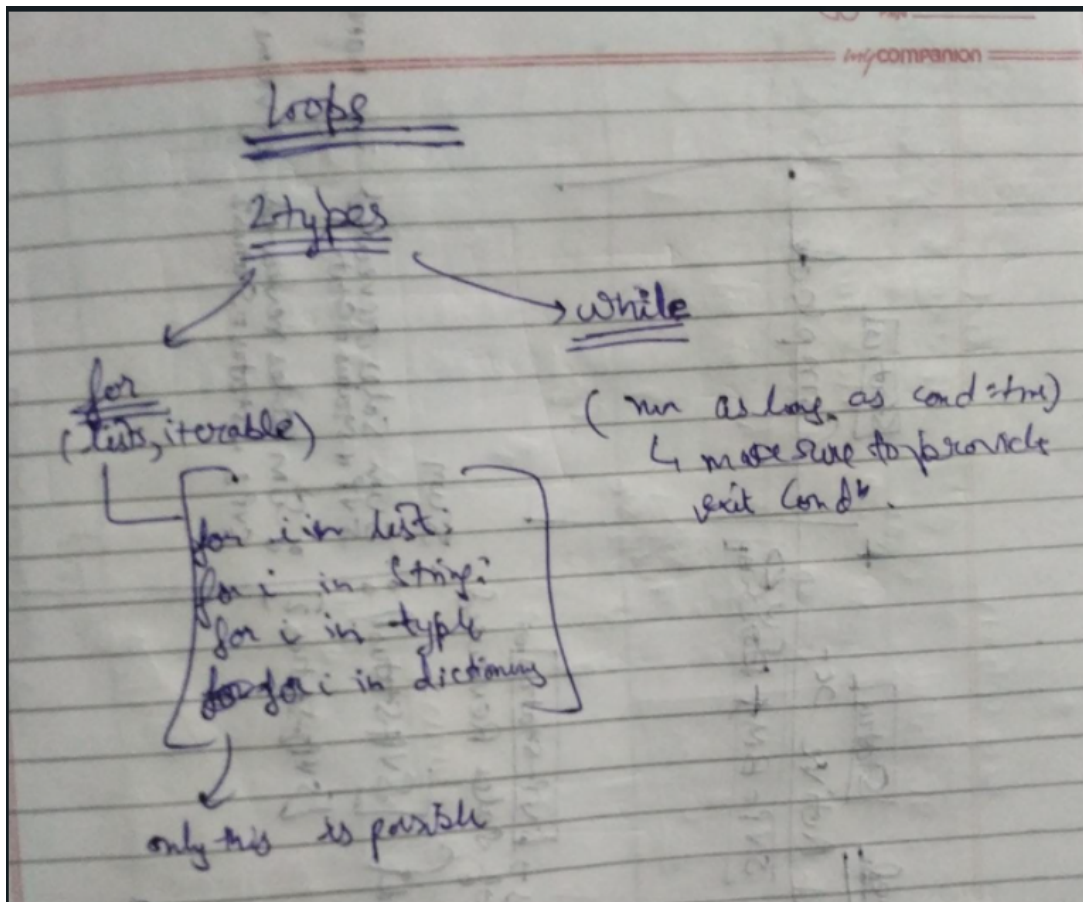 mycompanion
Loops
2 types
while
for
(lists, iterable)
( run as long as cond = true)
↳ make sure to provide
exit condn.
for i in list:
for i in string:
for i in tyble
for i in dictionary
only this is possible